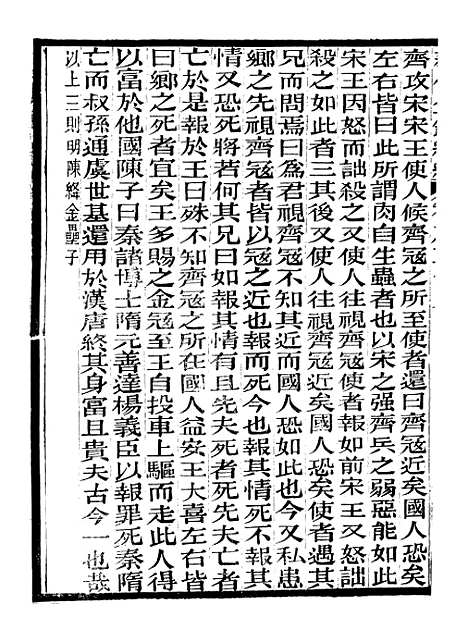 齊攻宋宋王使人候齊冦之所至使者還曰齊冦近矣國人恐矣
左右皆曰此所謂肉自生蟲者也以宋之强齊兵之弱惡能如此
宋王因怒而詘殺之又使人往視齊冦使者報如前宋王又怒詘
殺之如此者三其後又使人往視齊冦近矣國人恐矣使者遇其
兄而問焉曰爲君視齊冦不知其近而國人恐如此今又私患
鄉之先視齊冦者皆以冦之近也報而死今也報其情死不報其
情又恐死將若何其兄曰如報其情有且先夫死者死先夫亡者
亡於是報於王曰殊不知齊冦之所在國人益安王大喜左右皆
曰鄉之死者宜矣王多賜之金冦至王自投車上驅而走此人得
以富於他國陳子曰秦諸博士隋元善達楊義臣以報罪死秦隋
亡而叔孫通虞世基還用於漢唐終其身富且貴夫古今一也哉
以上三則明陳絳金罍子